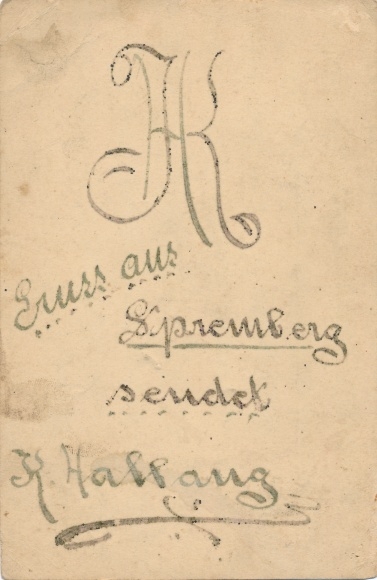 AK
Gruss aus
Spremberg
sendet
K. Hallaug